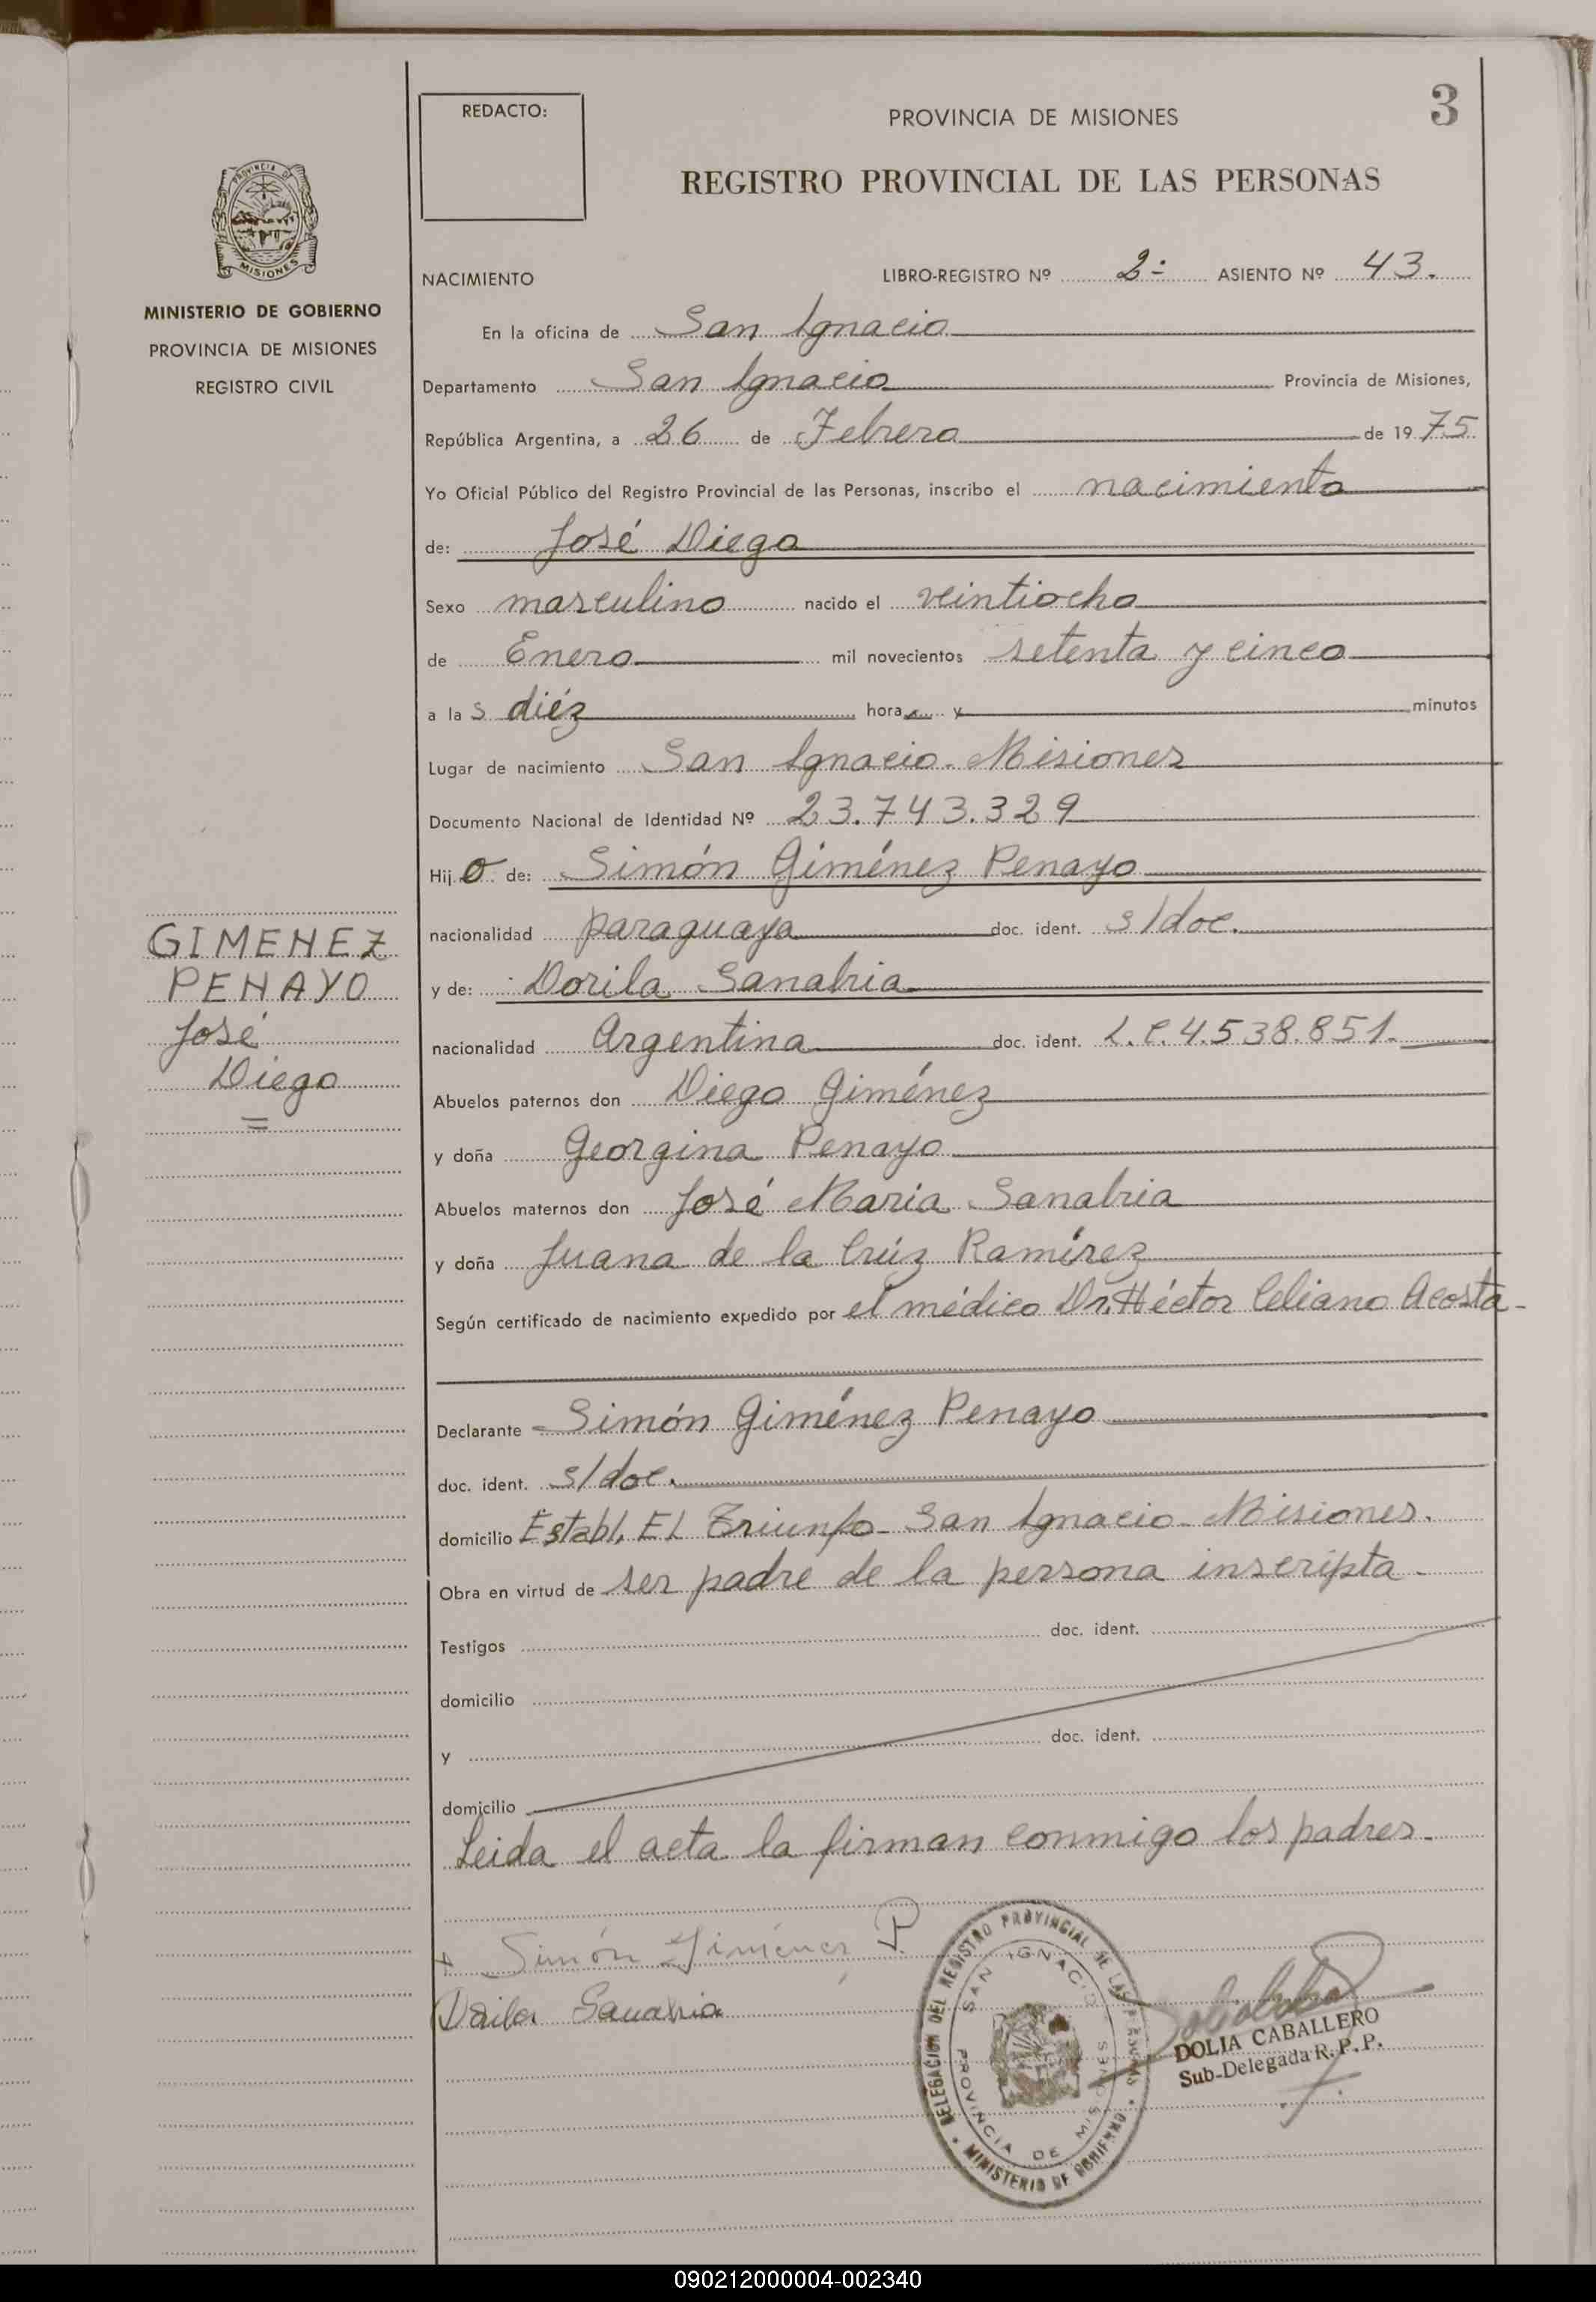 REDACTO:
PROVINCIA DE MISIONES
3
REGISTRO PROVINCIAL DE LAS PERSONAS
PROVINCIA DE
MISIONES
MINISTERIO DE GOBIERNO
PROVINCIA DE MISIONES
REGISTRO CIVIL
NACIMIENTO
LIBRO-REGISTRO Nº 2- ASIENTO Nº 43.
En la oficina de San Ignacio
Departamento San Ignacio Provincia de Misiones,
República Argentina, a 26 de Febrero de 1975
Yo Oficial Público del Registro Provincial de las Personas, inscribo el nacimiento
de: José Diego
Sexo masculino nacido el veintiocho
de Enero mil novecientos setenta y cinco
a las diéz horas y minutos
Lugar de nacimiento San Ignacio-Misiones
Documento Nacional de Identidad Nº 23.743.329
Hijo de: Simón Giménez Penayo
nacionalidad paraguaya doc. ident. s/doc.
y de: Dorila Sanabria
nacionalidad Argentina doc. ident. L.C.4.538.851.
Abuelos paternos don Diego Giménez
y doña Georgina Penayo
Abuelos maternos don José Maria Sanabria
y doña Juana de la Crúz Ramírez
Según certificado de nacimiento expedido por el médico Dr. Héctor Celiano Acosta-
GIMENEZ
PENAYO
José
Diego
=
Declarante Simón Giménez Penayo
doc. ident. s/doc.
domicilio Establ. El Triunfo-San Ignacio-Misiones.
Obra en virtud de ser padre de la persona inscripta.
Testigos doc. ident.
domicilio
y doc. ident.
domicilio
Leida el acta la firman conmigo los padres.
Simón Giménez P.
Sanabria
DELEGACION DEL REGISTRO PROVINCIAL DE LAS PERSONAS
MINISTERIO DE GOBIERNO
SAN IGNACIO
PROVINCIA DE MISIONES
DOLIA CABALLERO
Sub-Delegada R.P.P.
090212000004-002340